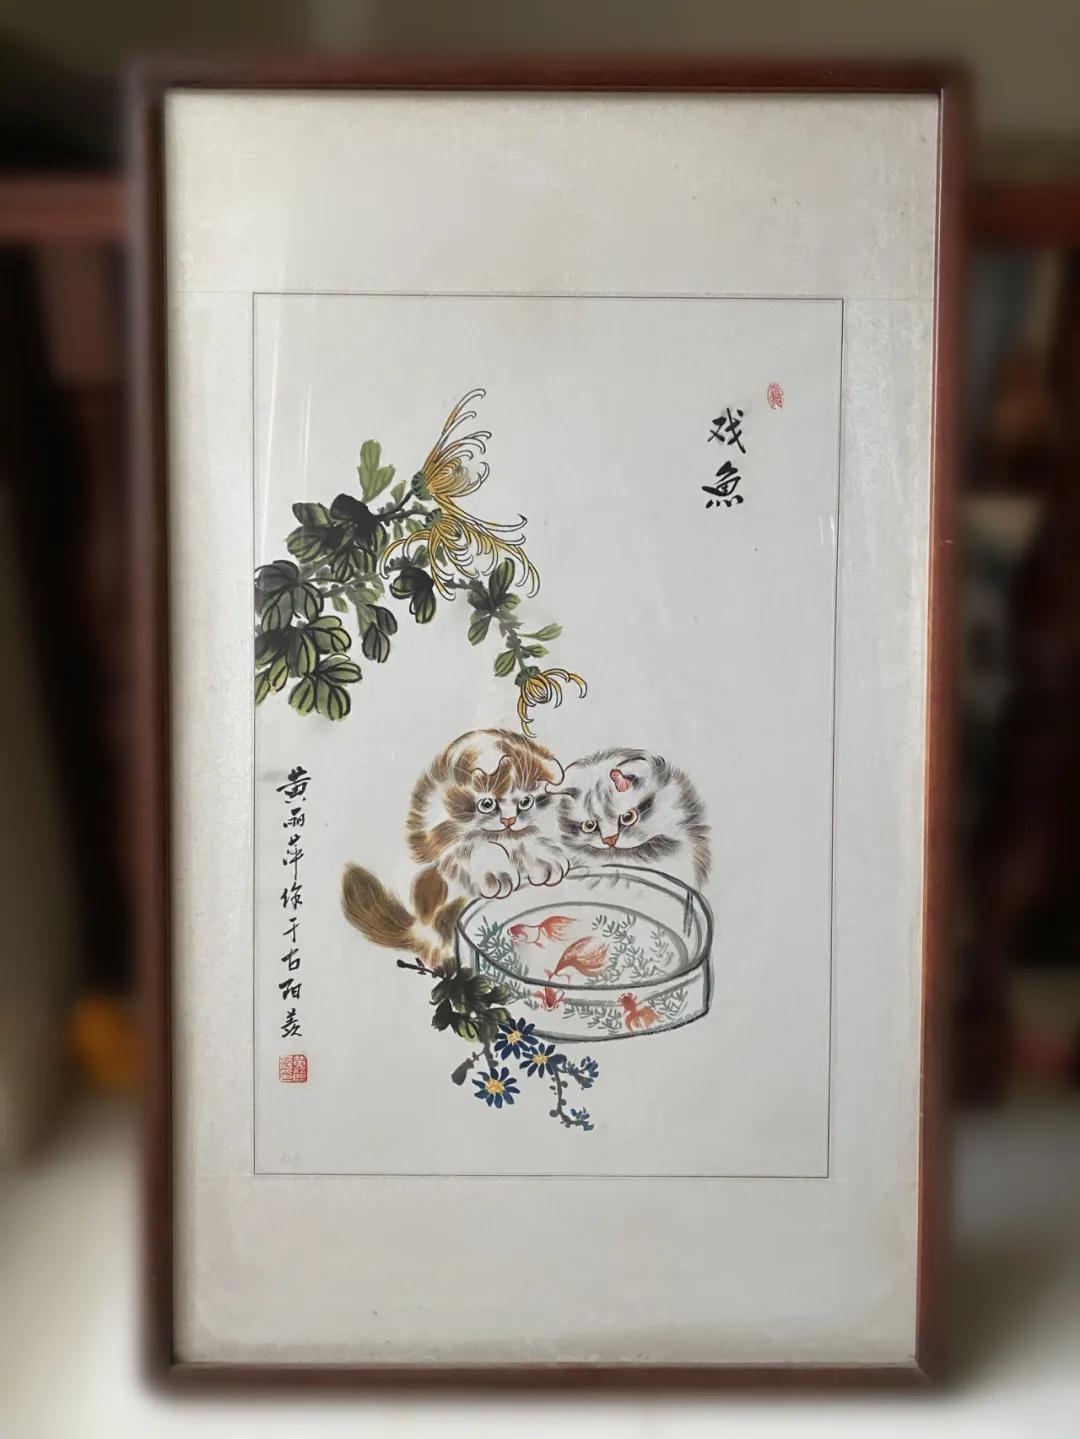 戏鱼
黄丽萍作于古阳羡